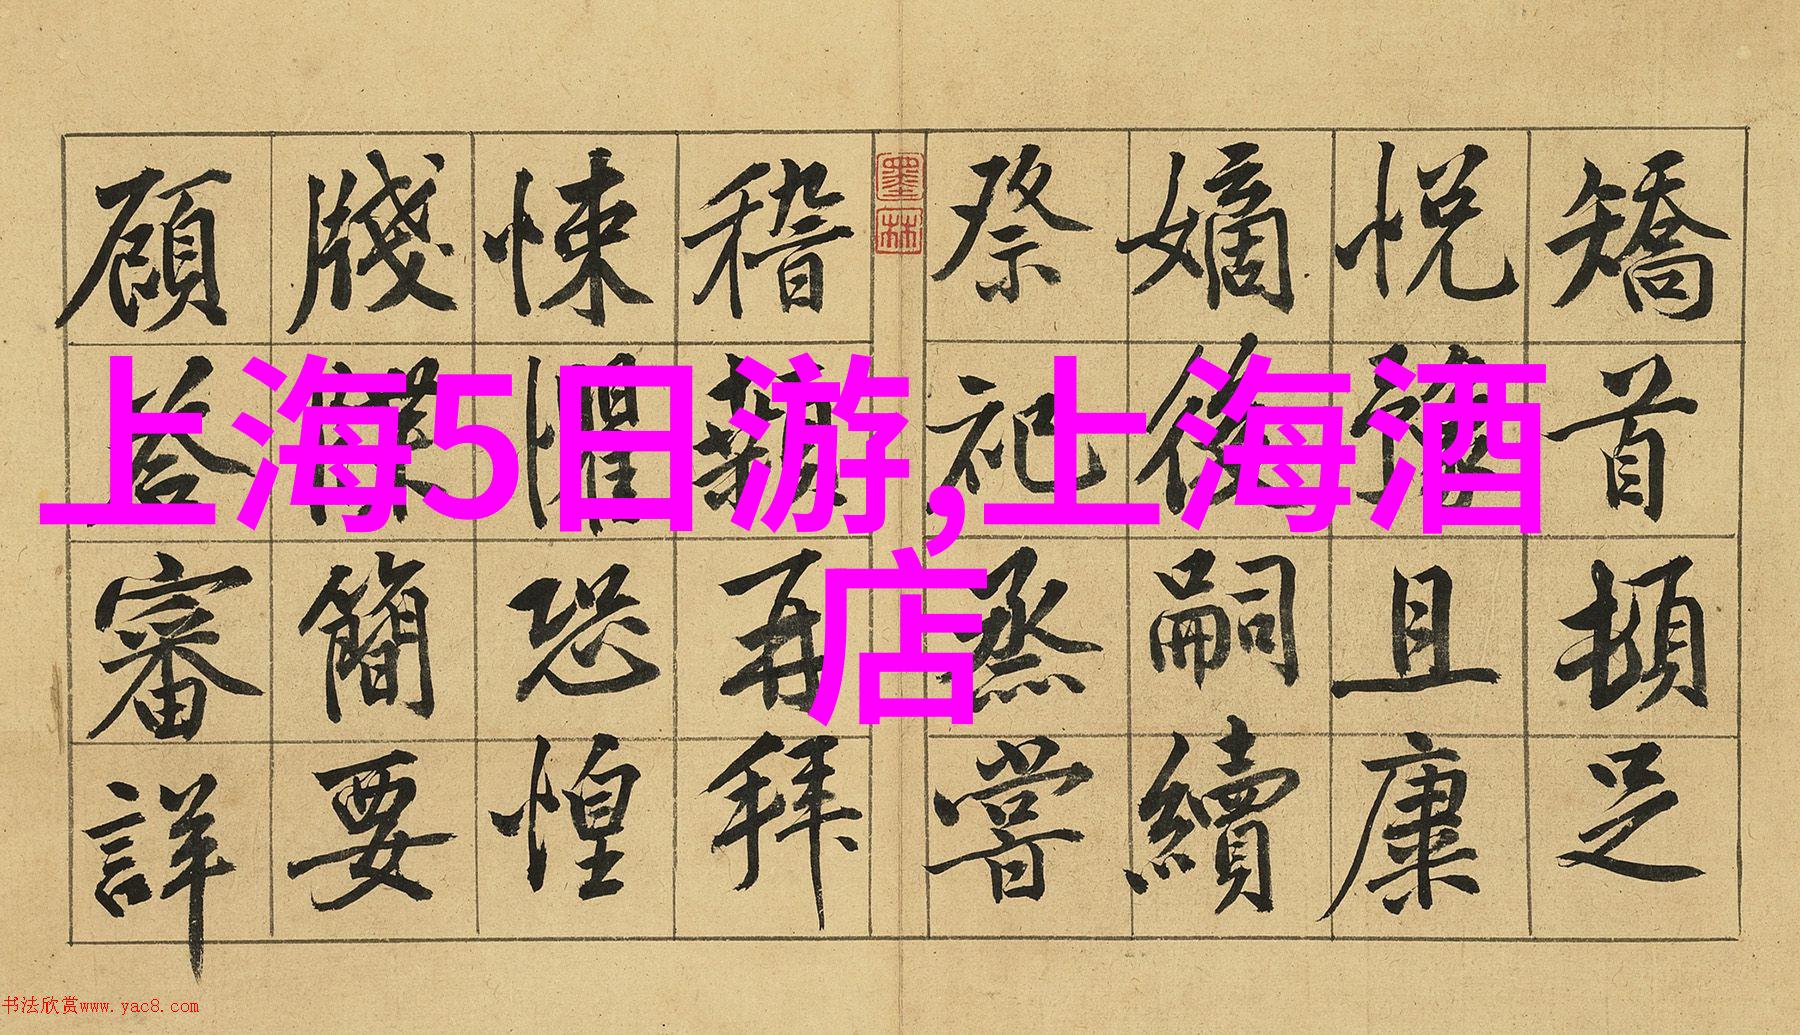 矯首頓足
悦豫且康
嫡後嗣續
祭祀烝嘗
墨林
稽顙再拜
悚懼恐惶
牋牒簡要
顧答審詳
上海5日游,上海酒
店
书法欣赏www.yac8.com